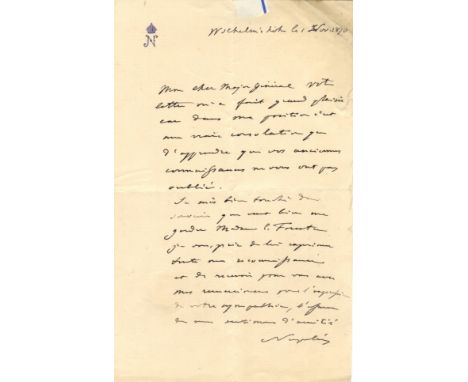 N
Wilhelmshöhe le 1 Nov 1870
Mon cher Major Général votre
lettre m'a fait grand plaisir
car dans ma position c'est
une vraie consolation que
d'apprendre que vos anciennes
connaissances ne vous ont pas
oublié.
Je suis bien touché du
souvenir que veut bien me
garder Madame
je vous prie de lui exprimer
toute ma reconnaissance
et de recevoir pour vous avec
mes remerciements pour l'expression
de votre sympathie, l'assurance
de mes sentiments d'amitié
Napoléon